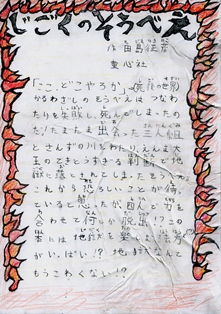 じごくのそうべえ
作 田島征彦
童心社
「ここ、どこやろか」(死後の世界)
かるわざしのそうべえはつなわ
たりを失敗し、死んでしまったの
だ!たまたま出会った三人組
とさんずの川をわたり、えんま大
王のてきとうすぎる判断で地
獄に落とされてしまったそうべえ。
これから恐ろしいことが待
ていると思ったが、四人で力を
合わせて何か脱出!?この
本には地獄を
がいっぱい!? 地獄なんて
もうこわくない!?